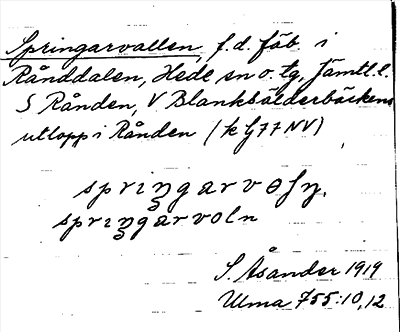 Springarvallen, f.d. fäb. i
Rånddalen, Hede sn o. tg, Jämtl. l.
S Rånden, V Blanksälderbäckens
utlopp i Rånden (k G77 NV)
springarvoln
S. Åsander 1919
Ulma 755:10,12